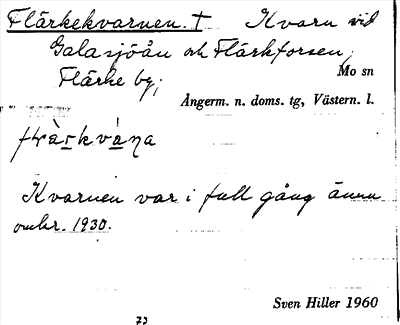 Flärkekvarnen. † Kvarn vid
Galasjöån och Flärkforsen,
Flärke by;
Mo sn
Ångerm. n. doms. tg, Västern. l.
Kvarnen var i full gång ännu
omkr. 1930.
Sven Hiller 1960
73